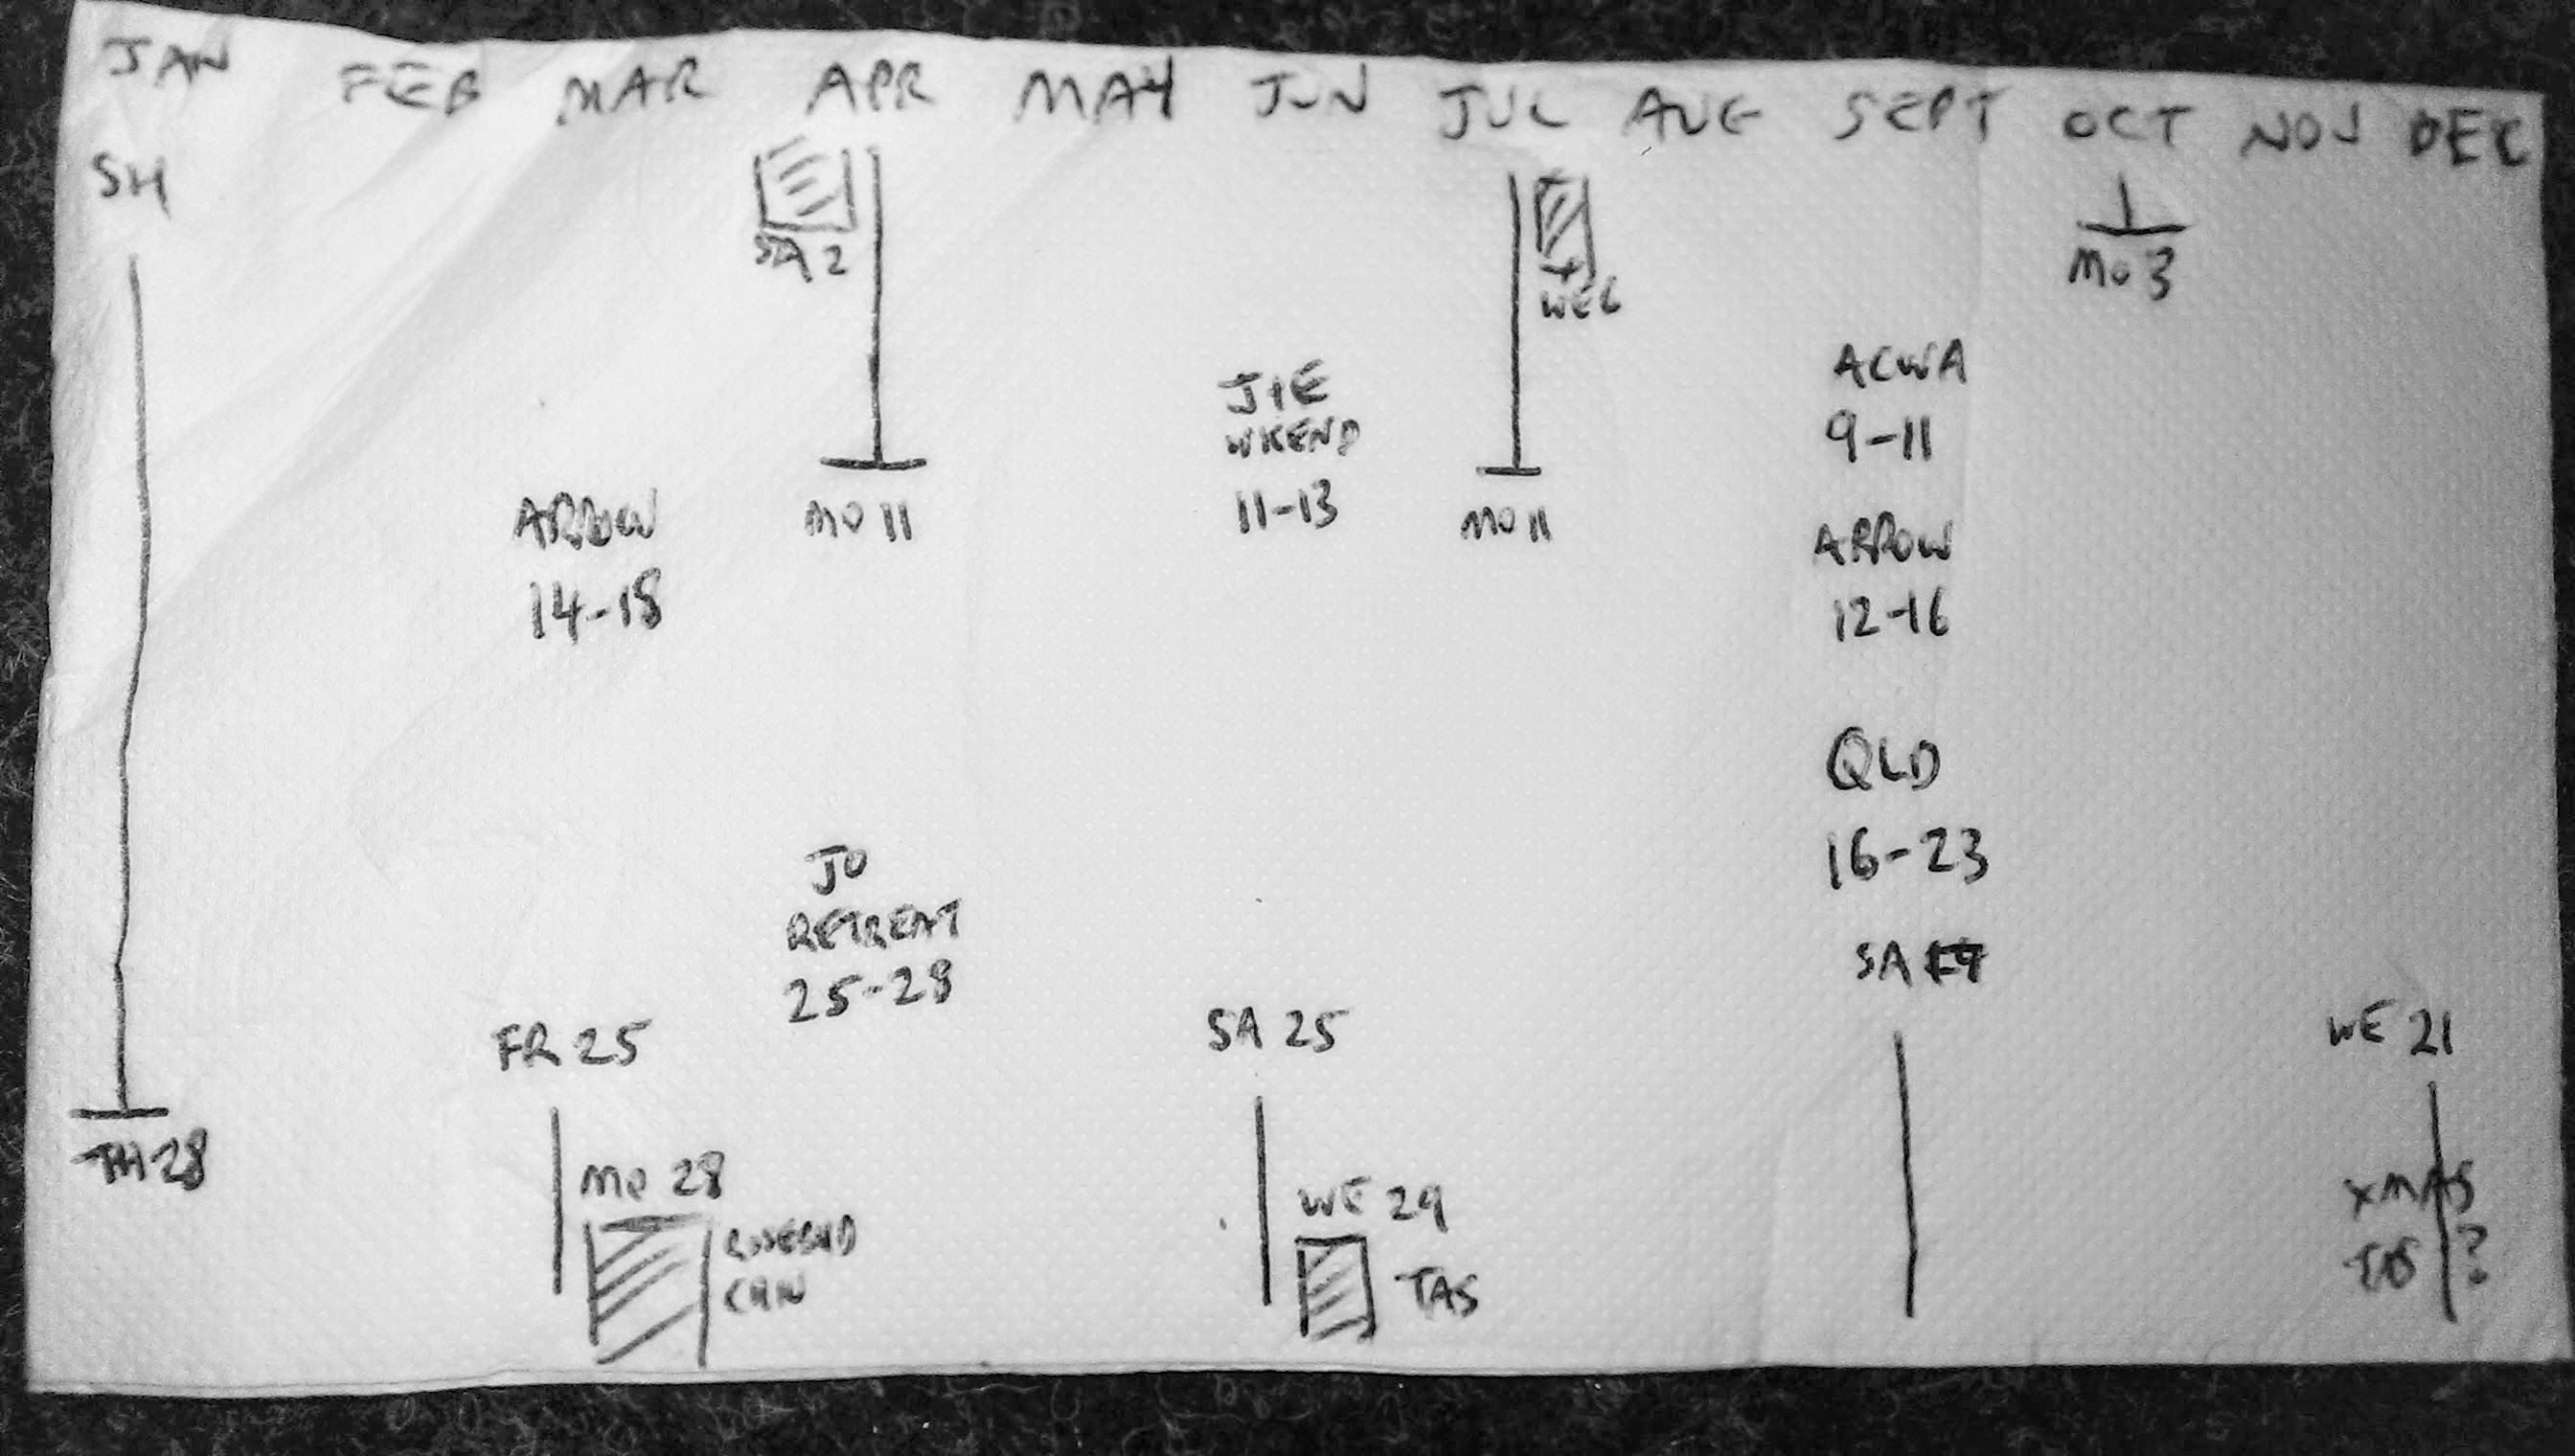 JAN FEB MAR APR MAY JUN JUL AUG SEPT OCT NOV DEC
SH
TH 28
ARROW
14-18
FR 25
MO 28
ROSEBUD
SA 2
MO 11
JO
RETREAT
25-28
J+E
WKEND
11-13
SA 25
WE 29
TAS
WE 6
MO 11
ACWA
9-11
ARROW
12-16
QLD
16-23
SA
MO 3
WE 21
XMAS
TAS ?